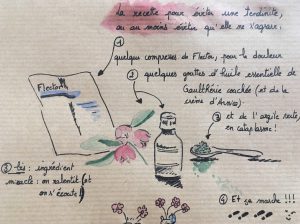 La recette pour éviter une tendinite,
ou au moins éviter qu'elle ne s'aggrave:
①
quelques compresses de Flector, pour la douleur
Flector
② quelques gouttes d'huile essentielle de
Gaulthérie couchée (et de la
crème d'Arnica)
③ et de l'argile verte,
en cataplasme!
③ bis: ingrédient
miracle: on ralentit (et
on s'écoute!)
④ Et ça marche!!!